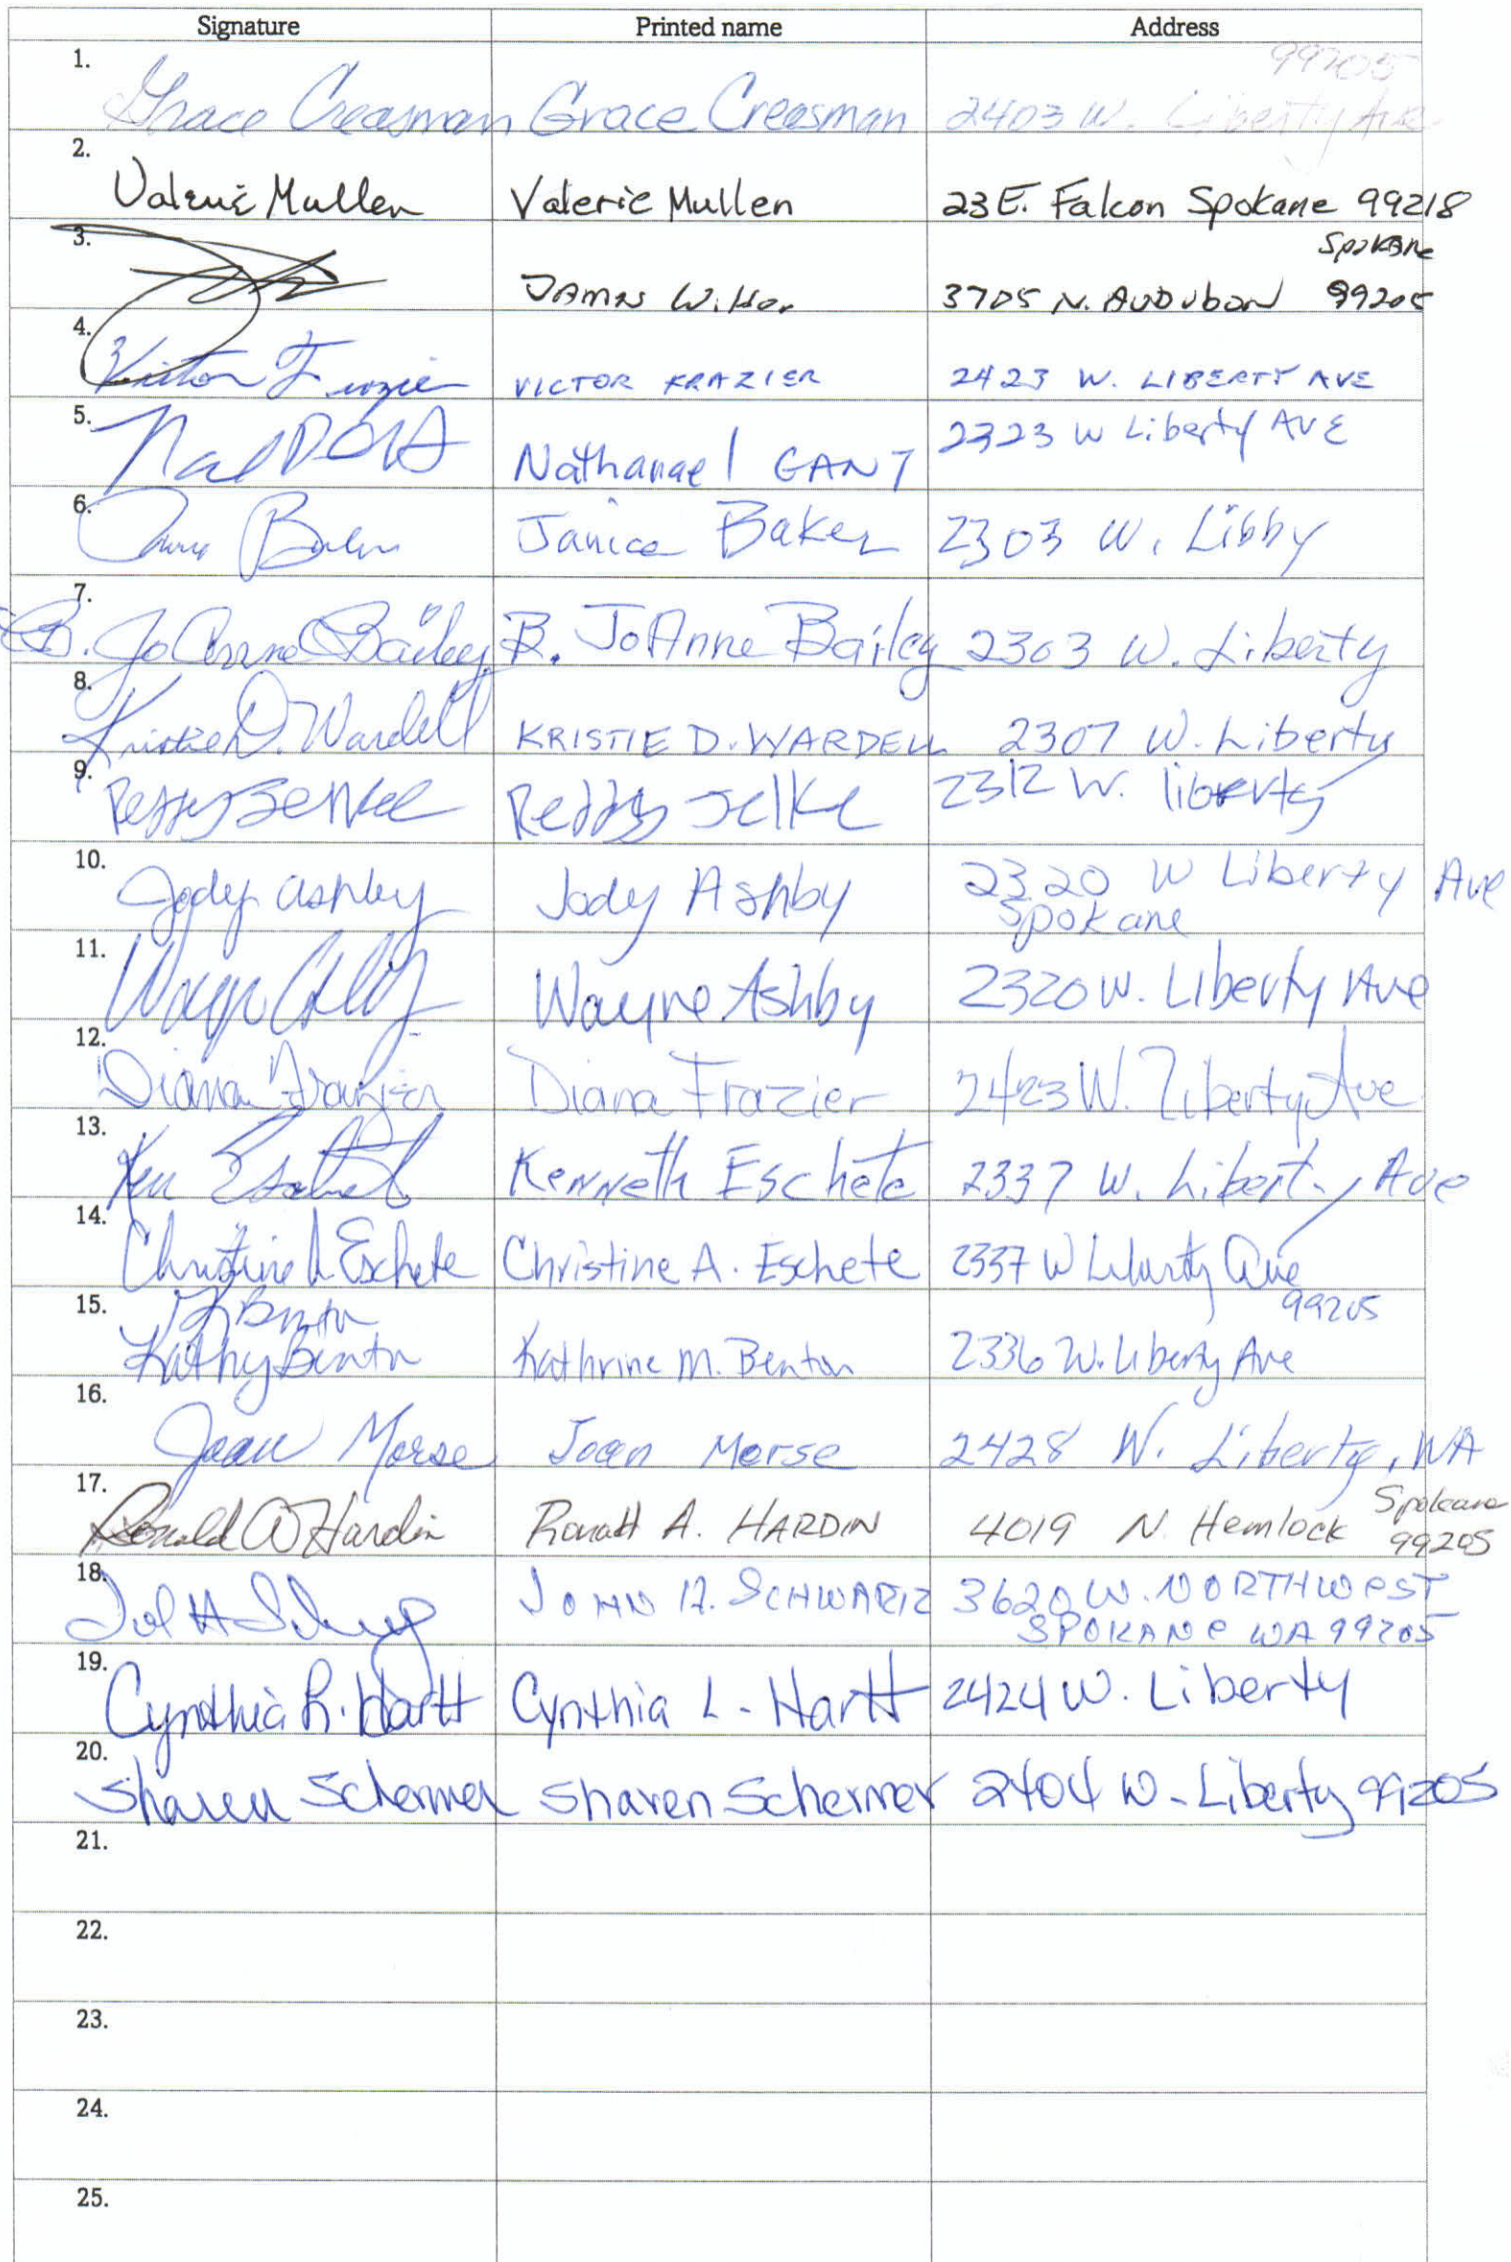 Signature Printed name Address
1. Grace Creasman Grace Creasman 2403 W. Liberty Ave 99205
2. Valerie Mullen Valerie Mullen 23 E. Falcon Spokane 99218
3. James 3705 N. Audubon Spokane 99205
4. Victor Frazier VICTOR FRAZIER 2423 W. LIBERTY AVE
5. Nathanael GANT 2323 W Liberty AVE
6. Janice Baker 2303 W. Libby
7. B. JoAnne Bailey B. JoAnne Bailey 2303 W. Liberty
8. Kristie D. Wardell KRISTIE D. WARDELL 2307 W. Liberty
9. 2312 W. liberty
10. Jody Ashby Jody Ashby 2320 W Liberty Ave
Spokane
11. Wayne Ashby 2320 W. Liberty Ave
12. Diana Frazier Diana Frazier 2423 W. Liberty Ave
13. Ken Kenneth Eschete 2337 W. Liberty Ave
14. Christine A Eschete Christine A. Eschete 2337 W Liberty Ave
99205
15. Kathy Benton Kathrine M. Benton 2336 W. Liberty Ave
16. Joan Morse Joan Morse 2428 W. Liberty, WA
17. Ronald A Hardin Ronald A. HARDIN 4019 N. Hemlock Spokane
99205
18. JOHN H. SCHWARTZ 3620 W. NORTHWEST
SPOKANE WA 99205
19. Cynthia L. Hartt Cynthia L. Hartt 2424 W. Liberty
20. Sharen Schermer Sharen Schermer 2404 W. Liberty 99205
21.
22.
23.
24.
25.